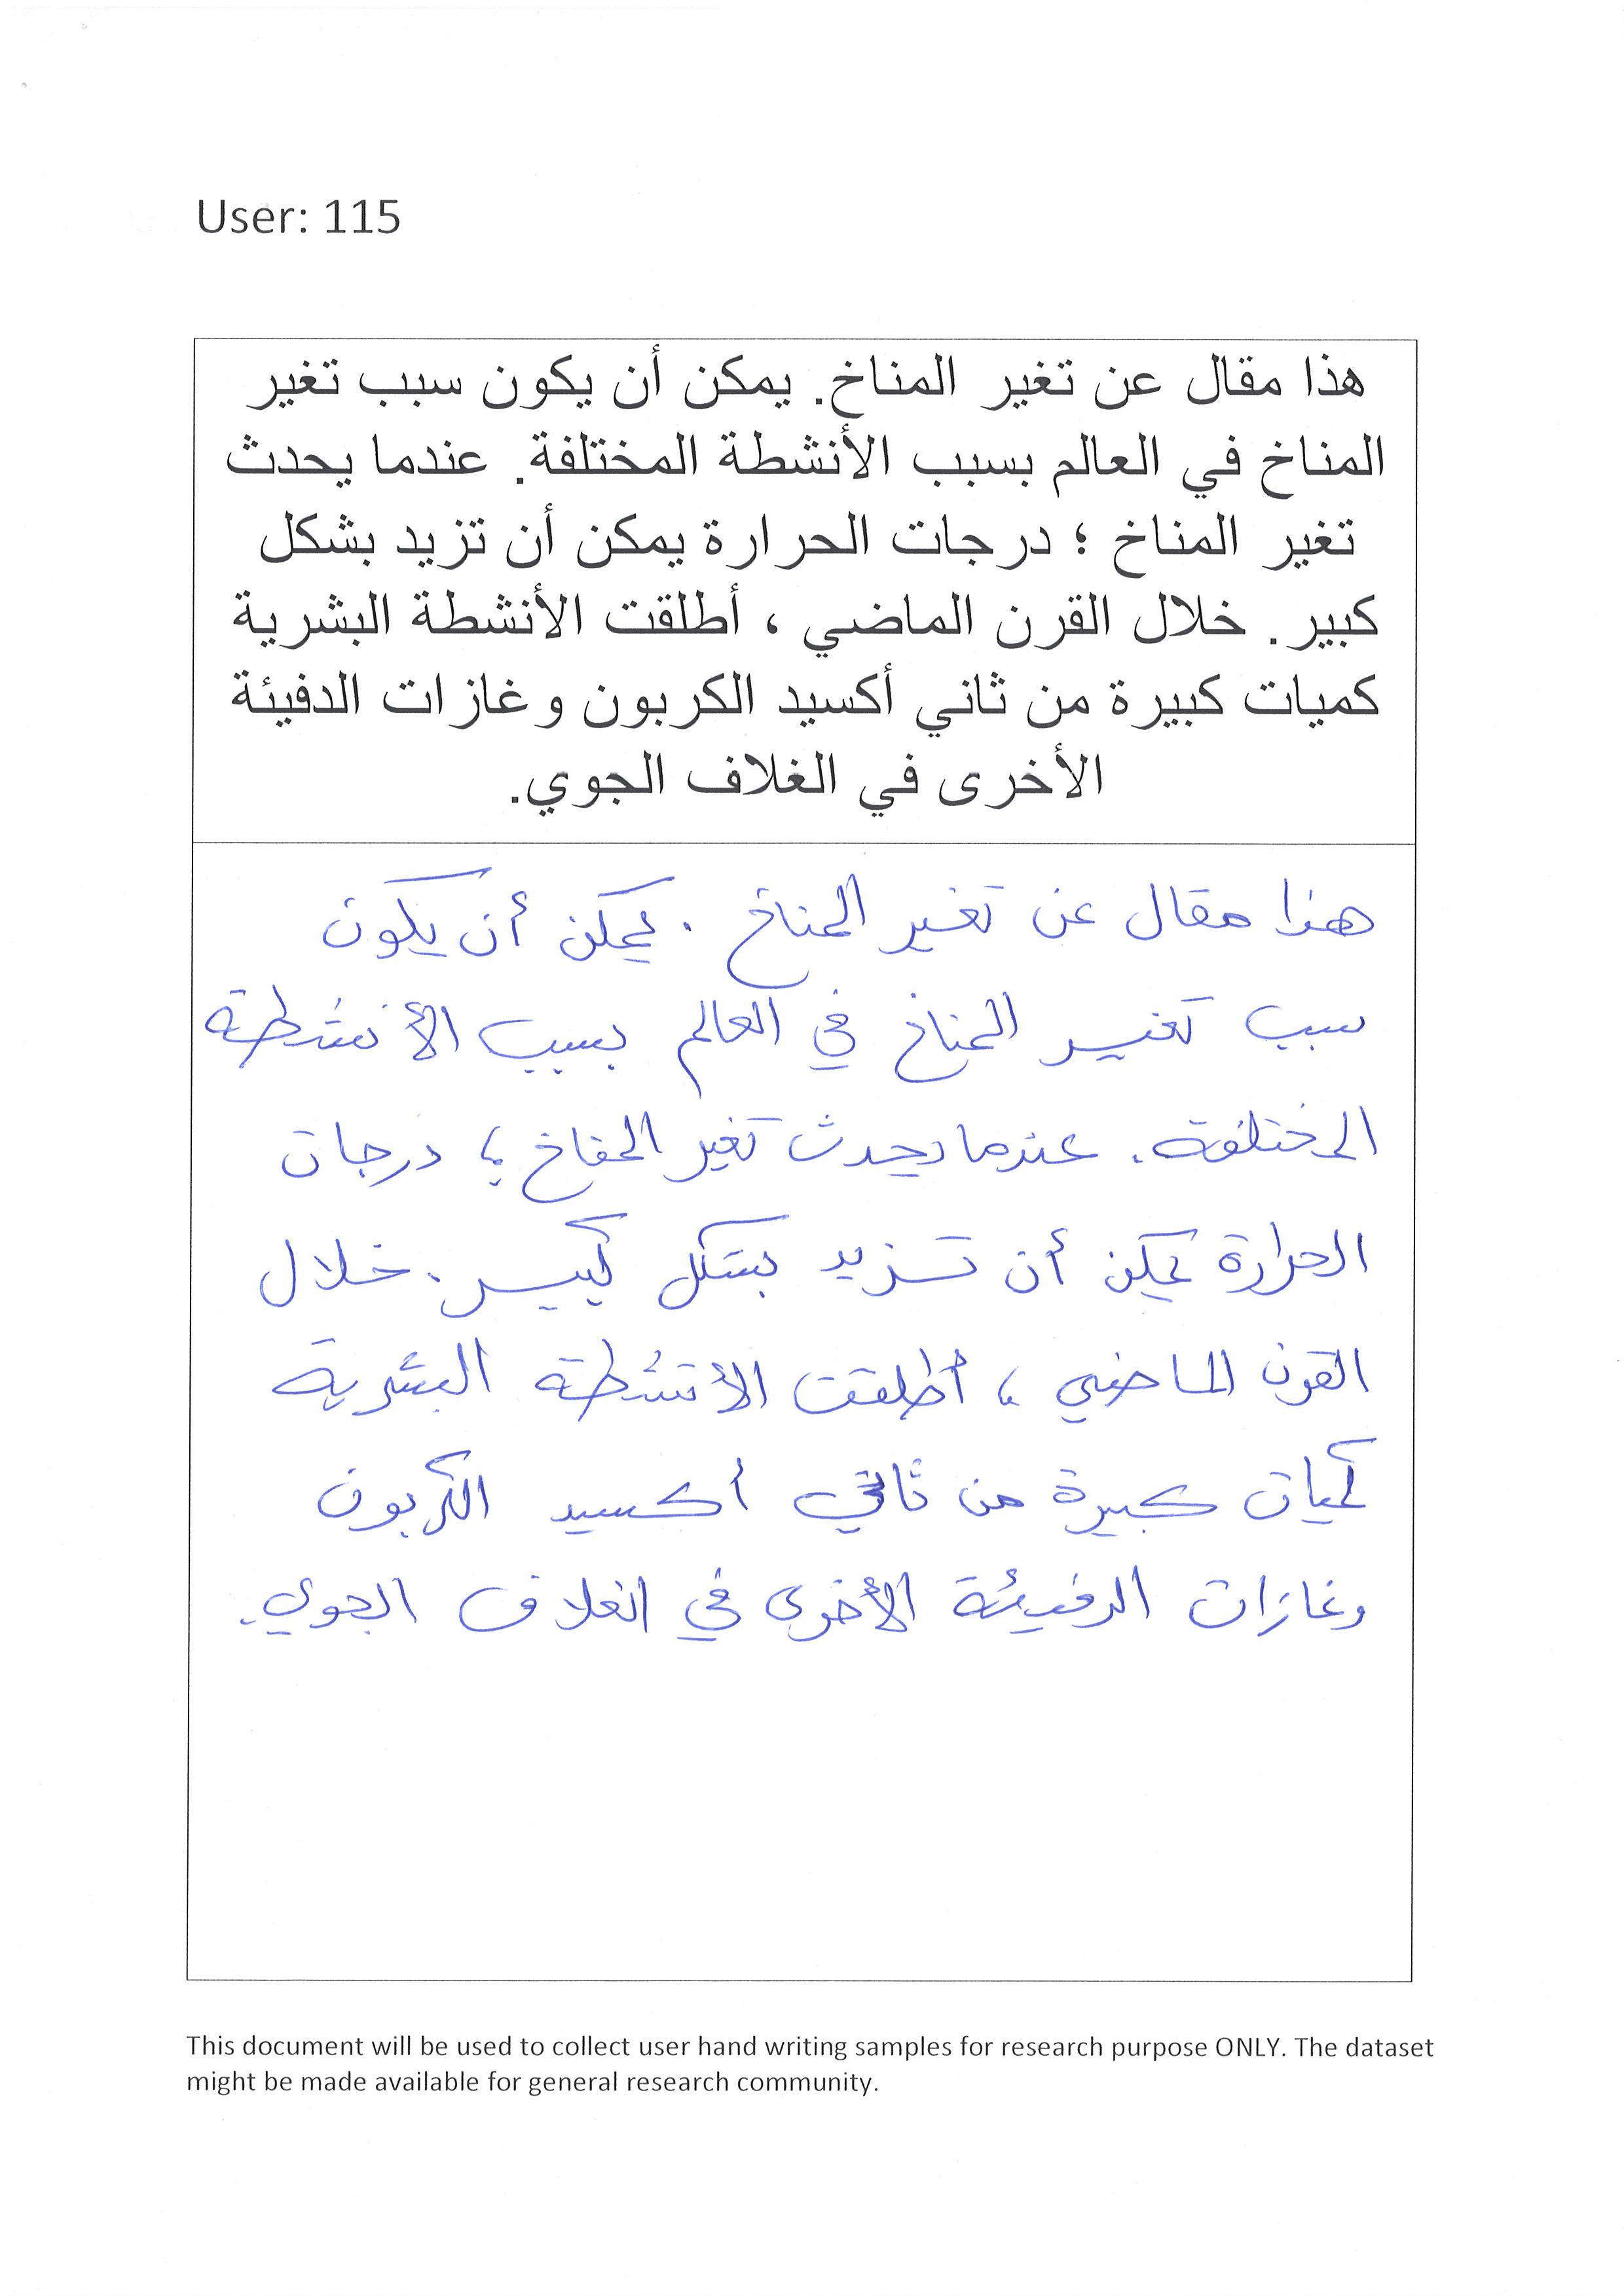 User: 115
هذا مقال عن تغير المناخ. يمكن أن يكون سبب تغير
المناخ في العالم بسبب الأنشطة المختلفة. عندما يحدث
تغير المناخ ؛ درجات الحرارة يمكن أن تزيد بشكل
كبير. خلال القرن الماضي ، أطلقت الأنشطة البشرية
كميات كبيرة من ثاني أكسيد الكربون وغازات الدفيئة
الأخرى في الغلاف الجوي.
هذا مقال عن تغير المناخ . يمكن أن يكون
سبب تغير المناخ في العالم بسبب الأنشطة
المختلفة. عندما يحدث تغير المناخ ؛ درجات
الحرارة يمكن أن تزيد بشكل كبير. خلال
القرن الماضي ، أطلقت الأنشطة البشرية
كميات كبيرة من ثاني أكسيد الكربون
وغازات الدفيئة الأخرى في الغلاف الجوي.
This document will be used to collect user hand writing samples for research purpose ONLY. The dataset
might be made available for general research community.